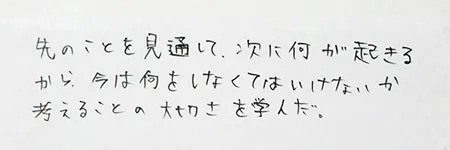 先のことを見通して、次に何が起きる
から、今は何をしなくてはいけないか
考えることの大切さを学んだ。